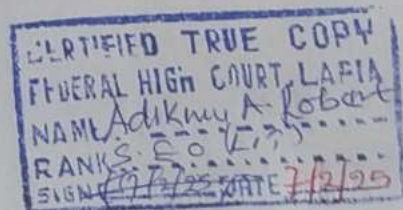 CERTIFIED TRUE COPY
FEDERAL HIGH COURT, LAFIA
NAME A. Robert
RANK S.E.O
SIGN DATE 7/2/25